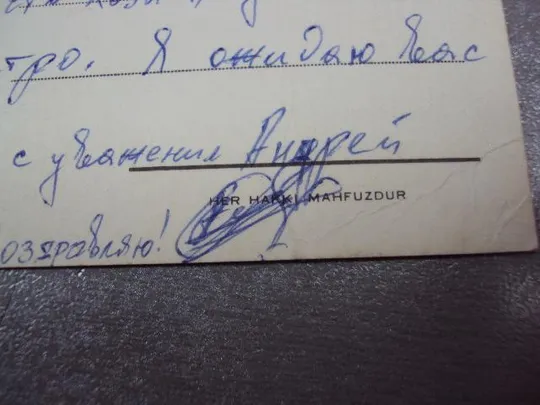 тро. Я ожидаю Вас
с уважения Андрей
HER HAKKI MAHFUZDUR
оздравляю!